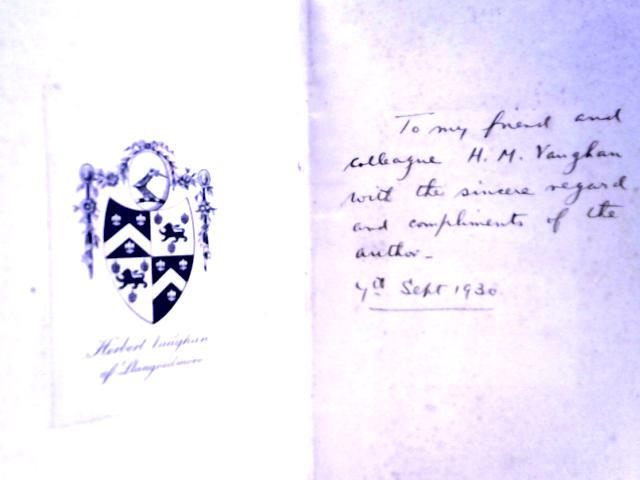 Herbert Vaughan
of Llangoedmore
To my friend and
colleague H. M. Vaughan
with the sincere regard
and compliments of the
author -
Sept 1930